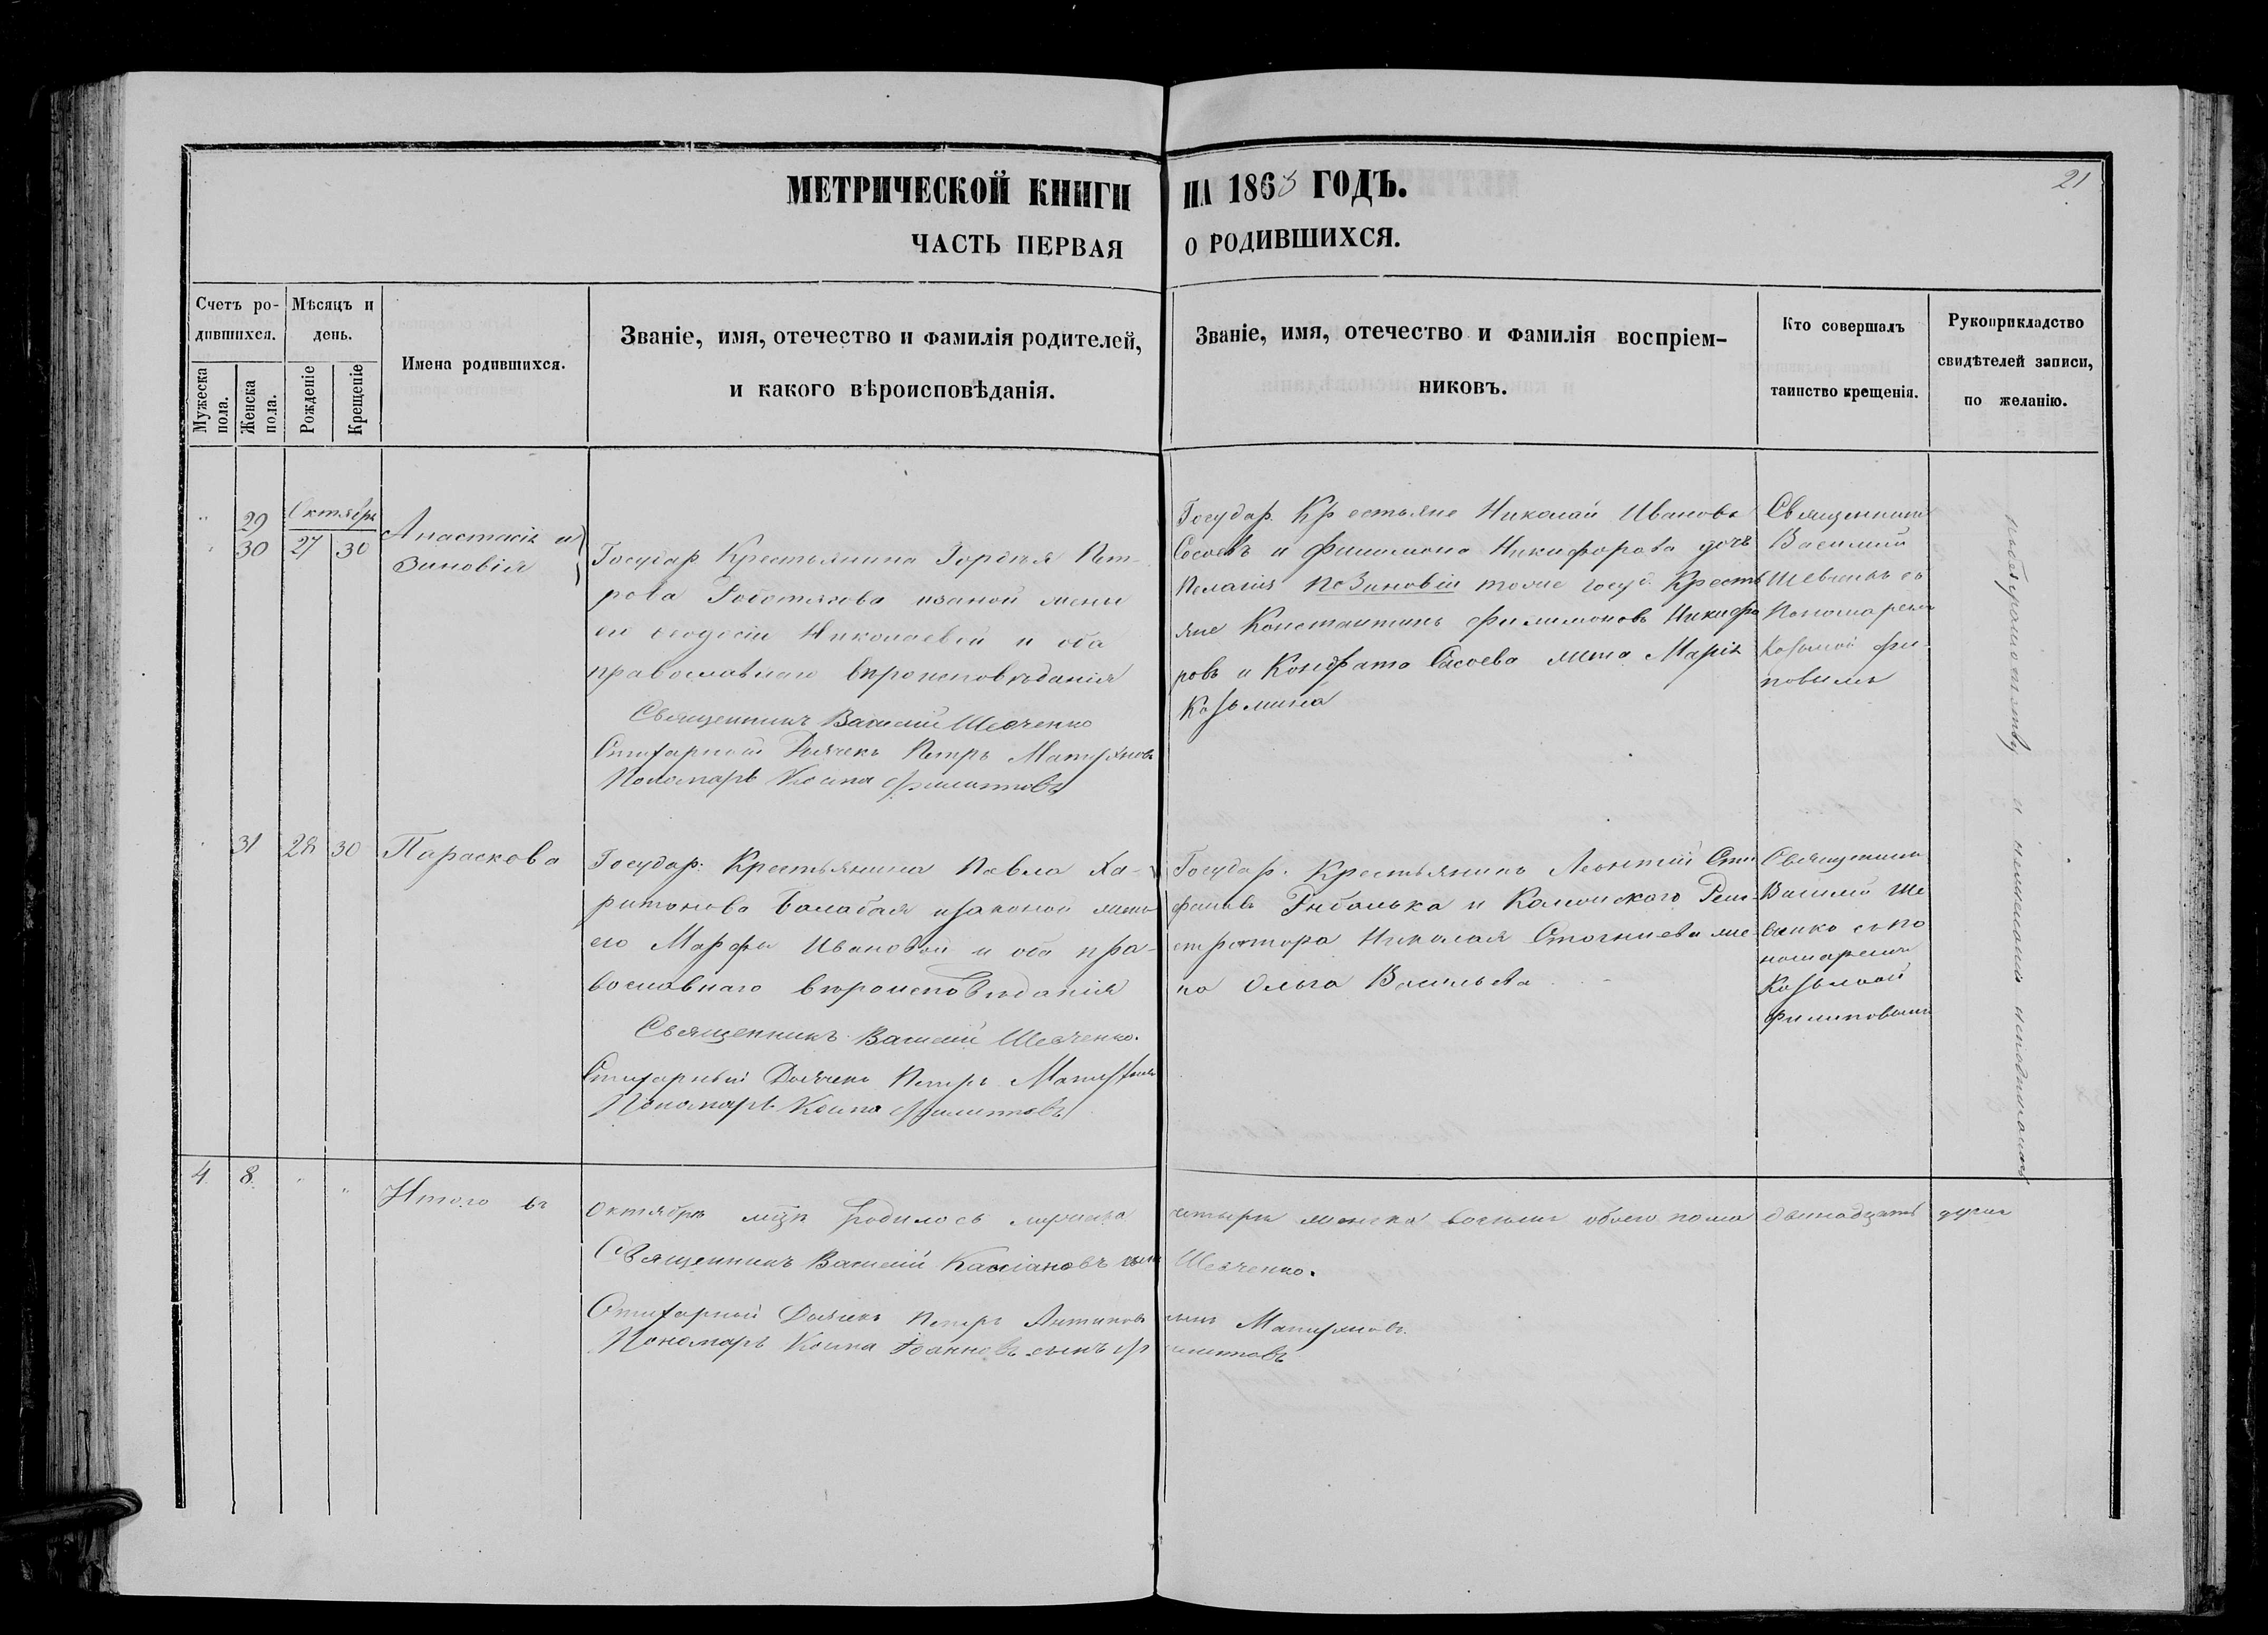 МЕТРИЧЕСКОЙ КНИГИ НА 1863 ГОДЪ.
21
ЧАСТЬ ПЕРВАЯ О РОДИВШИХСЯ.
Счетъ ро-
дившихся.
Мужеска
пола.
Женска
пола.
Мѣсяцъ и
день.
Рожденіе
Крещеніе
Имена родившихся.
Званіе, имя, отечество и фамилія родителей,
и какого вѣроисповѣданія.
Званіе, имя, отечество и фамилія воспріем-
никовъ.
Кто совершалъ
таинство крещенія.
Рукоприкладство
свидѣтелей записи,
по желанію.
29
30
Октябрь
27 30
Анастасія и
Зиновія
Государ Крестьянина Гордѣя Пет-
рова женой
ей Ѳеодосіи Николаевой и оба
православнаго вѣроисповѣданія
Священникъ Василій Шевченко
Стихарный Дьячекъ Петръ
Пономарь Косма Филипповъ
Государ. Крестьяне Николай Ивановъ
Сосоевъ и Филимона Никифорова дочь
Пелагія по Зиновіи тоже госуд. Кресть
яне Константинъ Филимоновъ Никифо
ровъ и Кондрата Сысоева жена Марія
Козьмина
Священникъ
Василій
Шевченко съ
Пономаремъ
Козьмой Фи-
повымъ
31 28 30 Параскева
Государ. Крестьянина Павла Ха-
ритонова Балабая изаконой жены
его Марфы Ивановой и оба пра-
вославнаго вѣроисповѣданія
Священникъ Василій Шевченко.
Стихарный Дьячекъ Петръ
Пономарь Косма Филипповъ
Государ. Крестьянинъ Леонтій Сти
фановъ Рибалька и Реги-
стратора Николая же-
на Ольга Васильева
Священникъ
Василій Ше
вченко съ По
номаремъ
Козьмой
Филиповымъ
и
4 8 Итого въ Октябрѣ мцѣ родилось мужеска четыри женска восемь обоего пола двенадцать душъ
Священникъ Василій Кассіановъ сынъ Шевченко.
Стихарный Дьячекъ Петръ сынъ
Пономарь Косма Іоанновъ сынъ Филипповъ